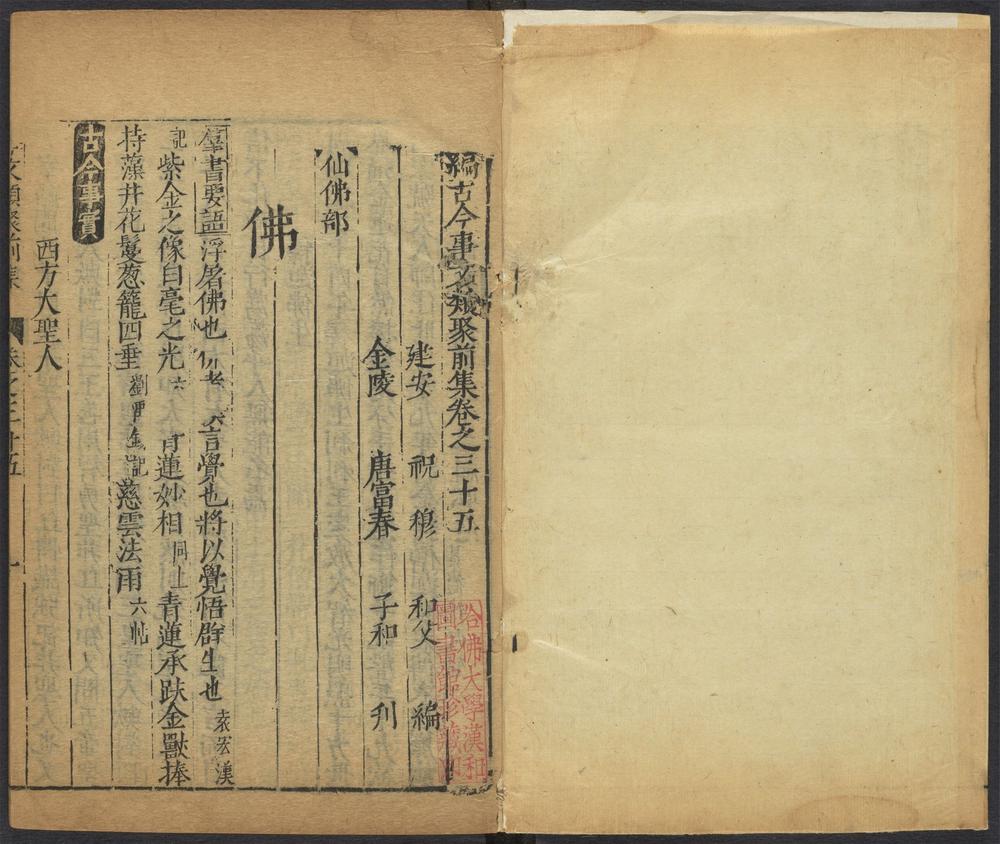 編古今事文類聚前集卷之三十五
建安 祝 穆 和父 編
金陵 唐富春 子和 刋
仙佛部
佛
羣書要語 浮屠佛也 言覺也將以覺悟群生也 袁宏漢
記 紫金之像白毫之光 六 青蓮妙相 同上 青蓮承趺金獸捧
持藻井花鬘葱籠四垂 劉 記 慈雲法雨 六帖
古今事實
西方大聖人
文類聚前集 卷之三十五
哈佛大學漢和
圖書館珍藏印